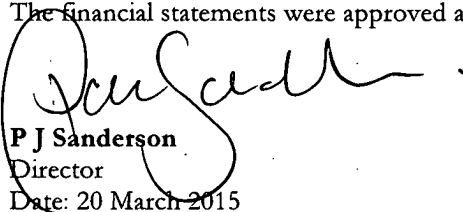 The financial statements were approved a
P J Sanderson
Director
Date: 20 March 2015